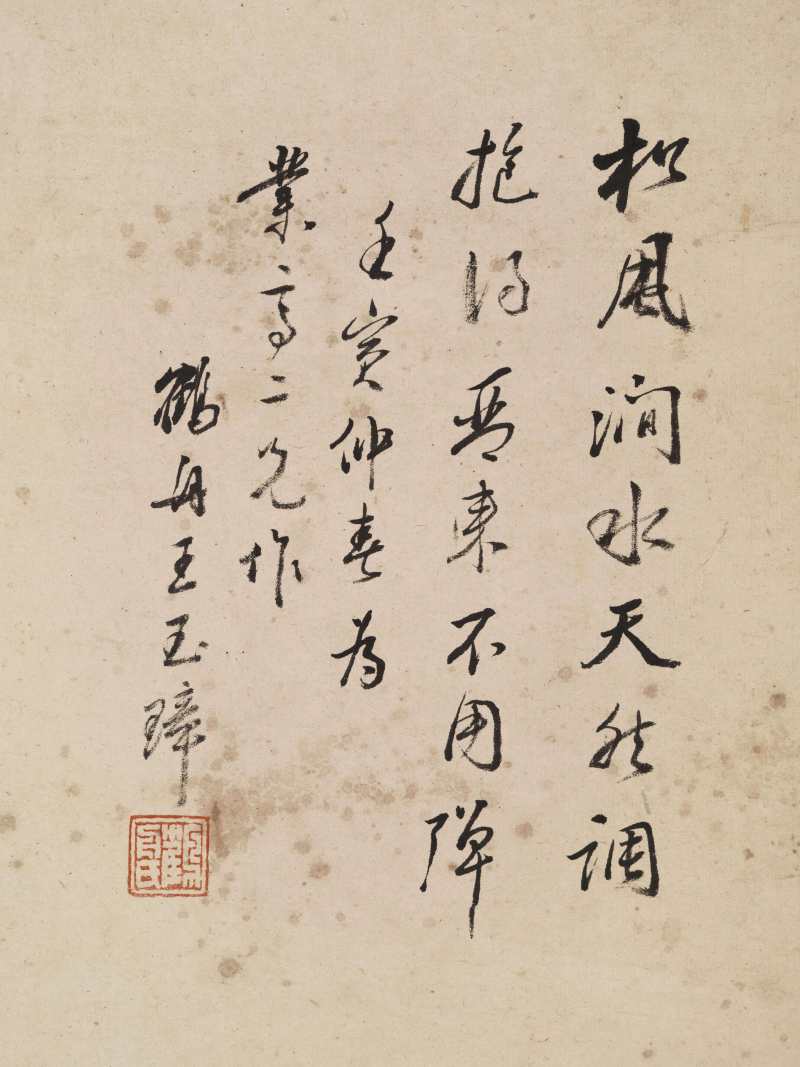 松風澗水天然調
抱得琴來不用彈
壬寅仲春為
業高二兄作
鶴舟王玉璋